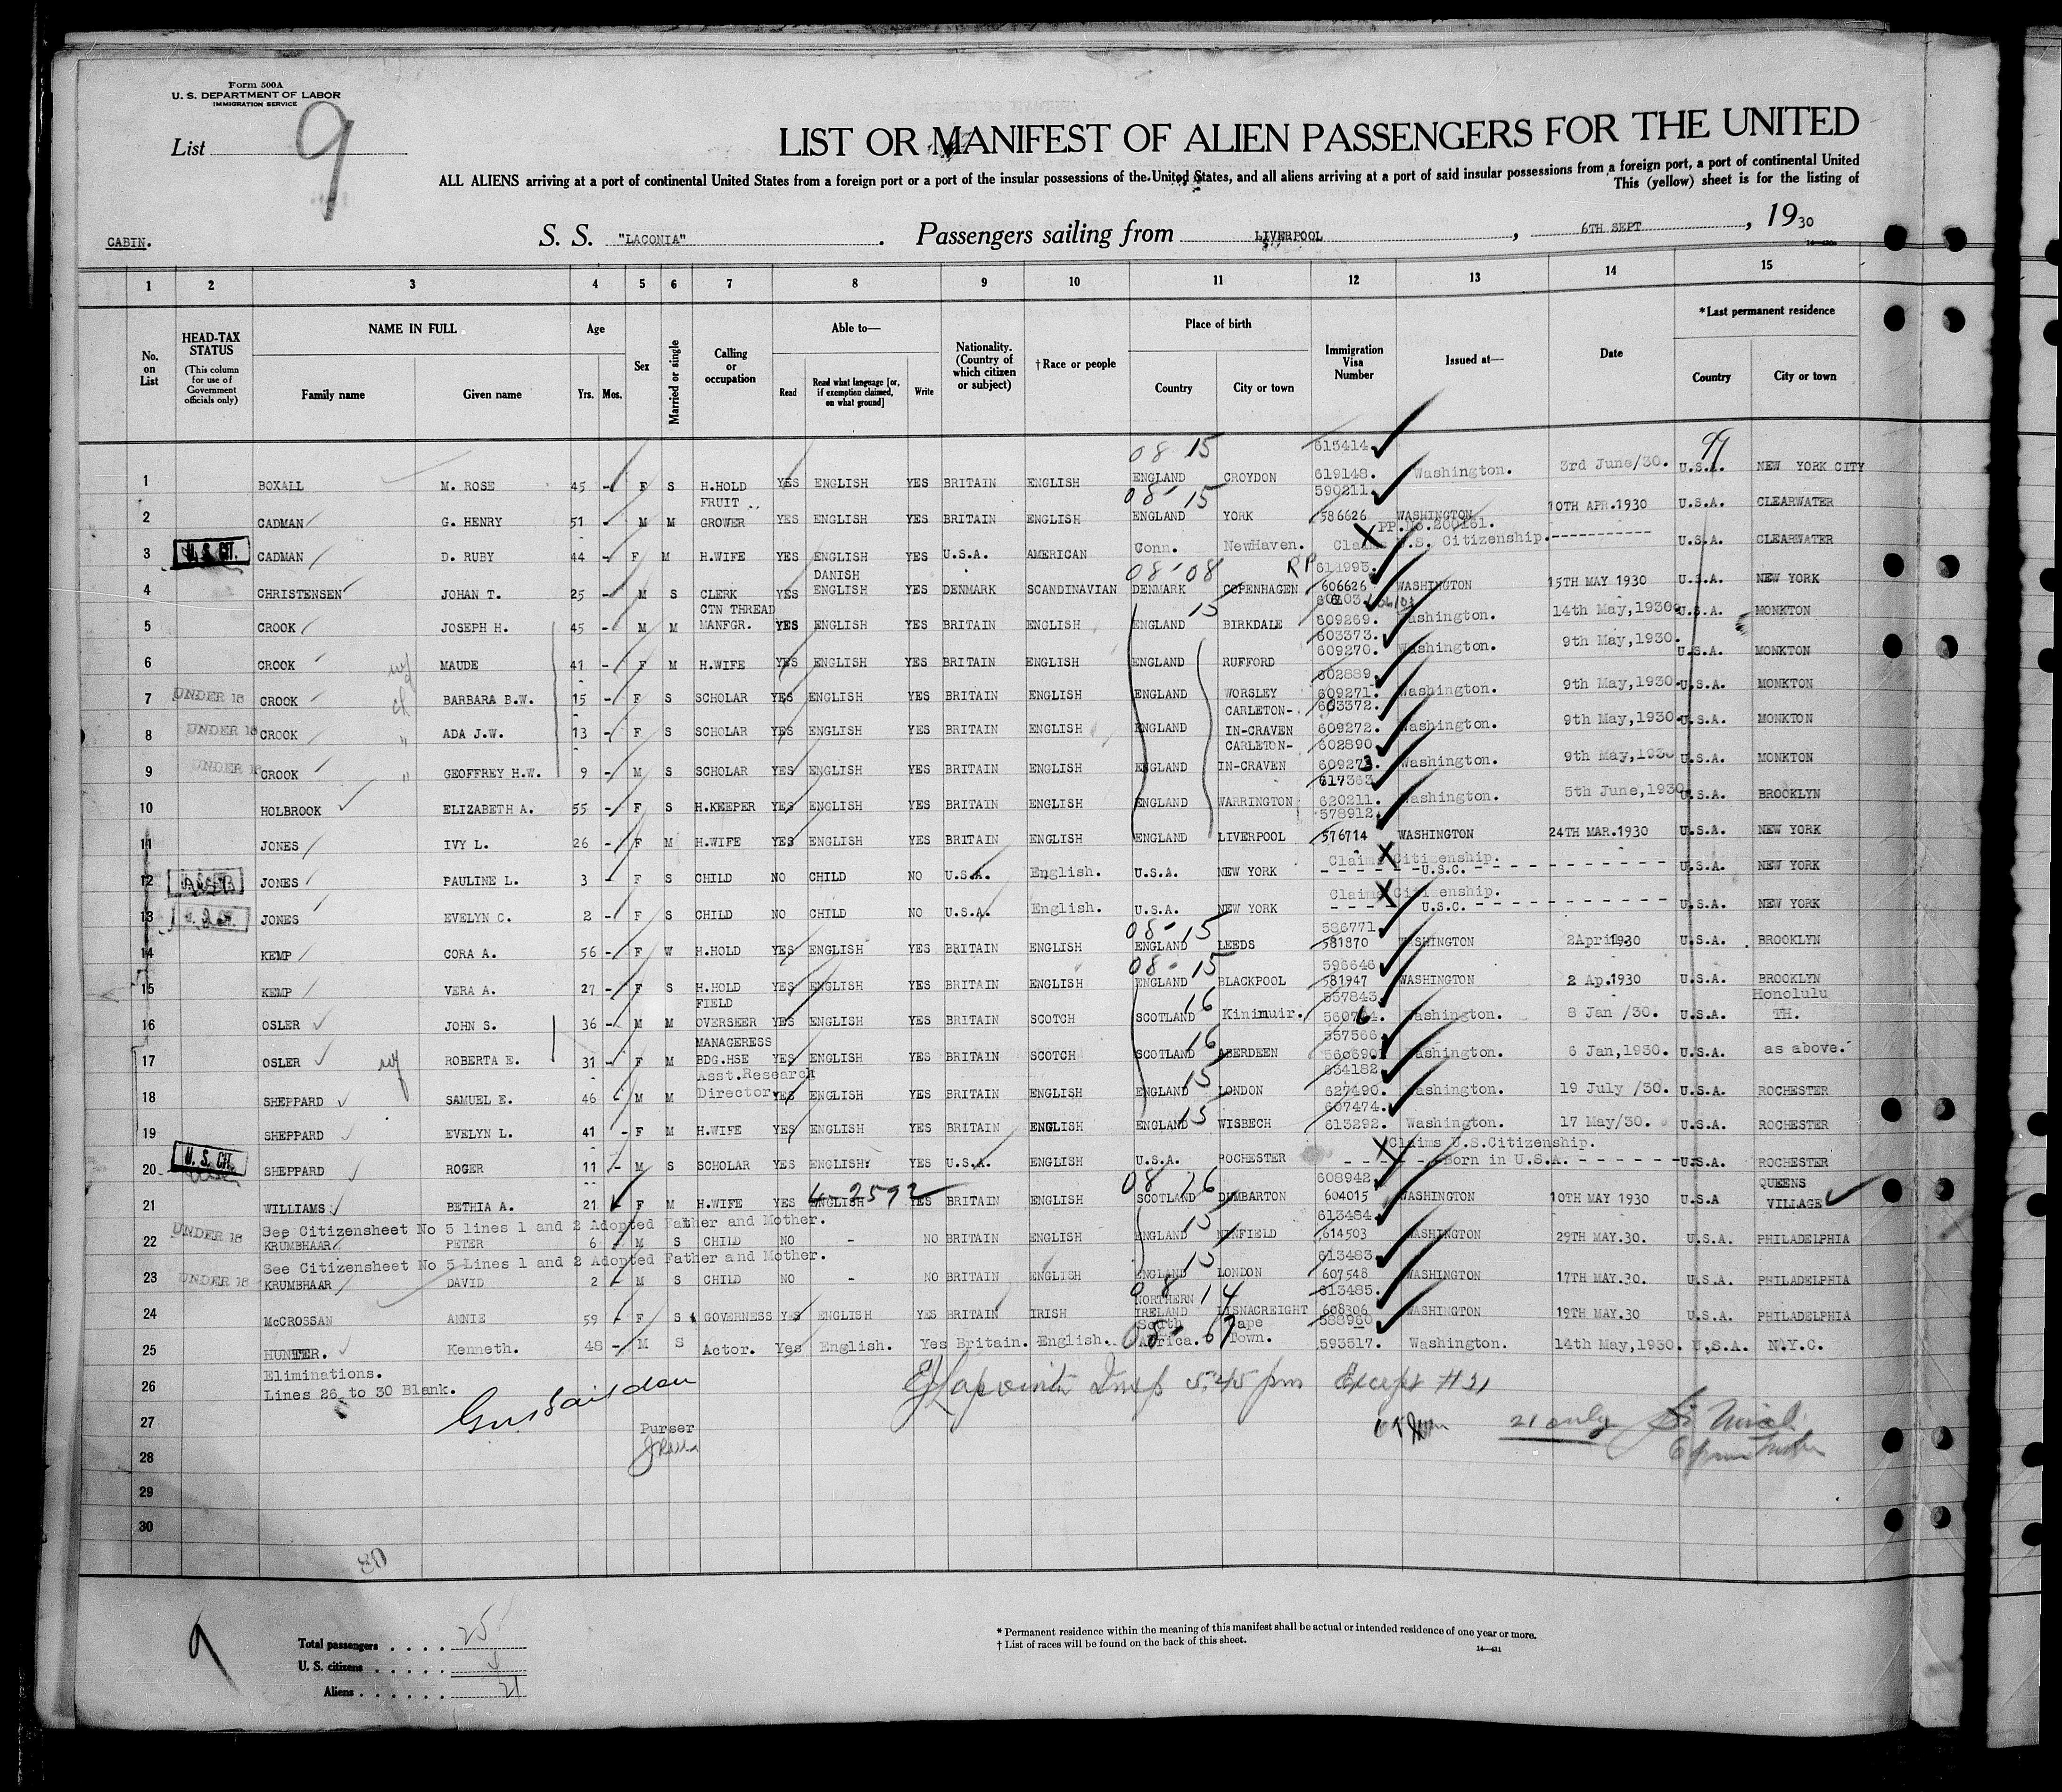 Form 500A
U. S. DEPARTMENT OF LABOR
IMMIGRATION SERVICE
List 9
LIST OR MANIFEST OF ALIEN PASSENGERS FOR THE UNITED
ALL ALIENS arriving at a port of continental United States from a foreign port or a port of the insular possessions of the United States, and all aliens arriving at a port of said insular possessions from a foreign port, a port of continental United
This (yellow) sheet is for the listing of
CABIN. S. S. "LACONIA" . Passengers sailing from LIVERPOOL , 6TH SEPT , 1930
1 2 3 4 5 6 7 8 9 10 11 12 13 14 15
No. on List
HEAD-TAX STATUS (This column for use of Government officials only)
NAME IN FULL Family name Given name
Age Yrs. Mos.
Sex
Married or single
Calling or occupation
Able to— Read Read what language [or, if exemption claimed, on what ground] Write
Nationality. (Country of which citizen or subject)
†Race or people
Place of birth Country City or town
Immigration Visa Number
Issued at—
Date
*Last permanent residence Country City or town
08 15 615414
1 BOXALL M. ROSE 45 - F S H.HOLD YES ENGLISH YES BRITAIN ENGLISH ENGLAND CROYDON 619148. Washington. 3rd June/30. U.S.A. NEW YORK CITY
FRUIT 08-15 590211.
2 CADMAN G. HENRY 51 - M M GROWER YES ENGLISH YES BRITAIN ENGLISH ENGLAND YORK 586626 WASHINGTON 10TH APR.1930 U.S.A. CLEARWATER
PP.No.200161.
3 U.S. CIT. CADMAN D. RUBY 44 - F M H.WIFE YES ENGLISH YES U.S.A. AMERICAN Conn. NewHaven. Claims U.S. Citizenship.----------- U.S.A. CLEARWATER
DANISH 08-08 RP 611995.
4 CHRISTENSEN JOHAN T. 25 - M S CLERK YES ENGLISH YES DENMARK SCANDINAVIAN DENMARK COPENHAGEN 606626 WASHINGTON 15TH MAY 1930 U.S.A. NEW YORK
CTN THREAD 15
5 CROOK JOSEPH H. 45 - M M MANFGR. YES ENGLISH YES BRITAIN ENGLISH ENGLAND BIRKDALE 609269. Washington. 14th May,1930. U.S.A. MONKTON
603373.
6 CROOK wf MAUDE 41 - F M H.WIFE YES ENGLISH YES BRITAIN ENGLISH ENGLAND RUFFORD 609270. Washington. 9th May,1930. U.S.A. MONKTON
602889.
7 UNDER 18 CROOK BARBARA B.W. 15 - F S SCHOLAR YES ENGLISH YES BRITAIN ENGLISH ENGLAND WORSLEY 609271. Washington. 9th May,1930. U.S.A. MONKTON
CARLETON- 603372.
8 UNDER 18 CROOK " ADA J.W. 13 - F S SCHOLAR YES ENGLISH YES BRITAIN ENGLISH ENGLAND IN-CRAVEN 609272. Washington. 9th May,1930. U.S.A. MONKTON
CARLETON- 602890.
9 UNDER 18 CROOK " GEOFFREY H.W. 9 - M S SCHOLAR YES ENGLISH YES BRITAIN ENGLISH ENGLAND IN-CRAVEN 609273. Washington. 9th May,1930 U.S.A. MONKTON
617363.
10 HOLBROOK ELIZABETH A. 55 - F S H.KEEPER YES ENGLISH YES BRITAIN ENGLISH ENGLAND WARRINGTON 620211. Washington. 5th June,1930. U.S.A. BROOKLYN
578912.
11 JONES IVY L. 26 - F M H.WIFE YES ENGLISH YES BRITAIN ENGLISH ENGLAND LIVERPOOL 576714 WASHINGTON 24TH MAR.1930 U.S.A. NEW YORK
Claims Citizenship.
12 JONES PAULINE L. 3 - F S CHILD NO CHILD NO U.S.A. English. U.S.A. NEW YORK - - - - - -U.S.C. - - - - - - - - - - - U.S.A. NEW YORK
Claims Citizenship.
13 JONES EVELYN C. 2 - F S CHILD NO CHILD NO U.S.A. English. U.S.A. NEW YORK - - - - U.S.C. - - - - - - - - - - - U.S.A. NEW YORK
08-15 586771.
14 KEMP CORA A. 56 - F W H.HOLD YES ENGLISH YES BRITAIN ENGLISH ENGLAND LEEDS 581870 WASHINGTON 2 April 1930 U.S.A. BROOKLYN
08-15 596646
15 KEMP VERA A. 27 - F S H.HOLD YES ENGLISH YES BRITAIN ENGLISH ENGLAND BLACKPOOL 581947 WASHINGTON 2 Ap.1930 U.S.A. BROOKLYN
FIELD 16 557843. Honolulu
16 OSLER JOHN S. 36 - M M OVERSEER YES ENGLISH YES BRITAIN SCOTCH SCOTLAND Kininmuir. Washington. 8 Jan /30. U.S.A. TH.
MANAGERESS 16 557566.
17 OSLER wf ROBERTA E. 31 - F M BDG.HSE YES ENGLISH YES BRITAIN SCOTCH SCOTLAND ABERDEEN 560690. Washington. 6 Jan,1930. U.S.A. as above.
Asst.Research 15 634182
18 SHEPPARD SAMUEL E. 46 - M M Director. YES ENGLISH YES BRITAIN ENGLISH ENGLAND LONDON 627490. Washington. 19 July /30. U.S.A. ROCHESTER
15 607474.
19 SHEPPARD EVELYN L. 41 - F M H.WIFE YES ENGLISH YES BRITAIN ENGLISH ENGLAND WISBECH 613292. Washington. 17 May/30. U.S.A. ROCHESTER
Claims U.S.Citizenship.
20 U.S. CIT. SHEPPARD ROGER 11 - M S SCHOLAR YES ENGLISH YES U.S.A. ENGLISH U.S.A. ROCHESTER - - - - - - Born in U.S.A. - - - - - - U.S.A. ROCHESTER
4-2592 08 16 608942. QUEENS
21 WILLIAMS BETHIA A. 21 F M H.WIFE YES ENGLISH YES BRITAIN ENGLISH SCOTLAND DUMBARTON 604015 WASHINGTON 10TH MAY 1930 U.S.A VILLAGE
See Citizensheet No 5 lines 1 and 2 Adopted Father and Mother. 15 613484.
22 UNDER 18 KRUMBHAAR PETER 6 - M S CHILD NO - NO BRITAIN ENGLISH ENGLAND WINFIELD 614503 WASHINGTON 29TH MAY.30. U.S.A. PHILADELPHIA
See Citizensheet No 5 Lines 1 and 2 Adopted Father and Mother. 15 613483.
23 UNDER 18 KRUMBHAAR DAVID 2 - M S CHILD NO - NO BRITAIN ENGLISH ENGLAND LONDON 607548 WASHINGTON 17TH MAY.30. U.S.A. PHILADELPHIA
08 14 NORTHERN 613485.
24 McCROSSAN ANNIE 59 - F S GOVERNESS YES ENGLISH YES BRITAIN IRISH IRELAND LISNACREIGHT 608306 WASHINGTON 19TH MAY.30 U.S.A. PHILADELPHIA
South Cape 588960
25 HUNTER. Kenneth. 48 - M S Actor. Yes English. Yes Britain. English. Africa. Town. 593517. Washington. 14th May,1930. U.S.A. N.Y.C.
Eliminations.
26 Lines 26 to 30 Blank. Insp 5.45 pm Except #21
27 Purser 21 only
28
29
30
80
9
Total passengers . . . . 25
U. S. citizens . . . . . .
Aliens . . . . . . 21
* Permanent residence within the meaning of this manifest shall be actual or intended residence of one year or more.
† List of races will be found on the back of this sheet.
14—421